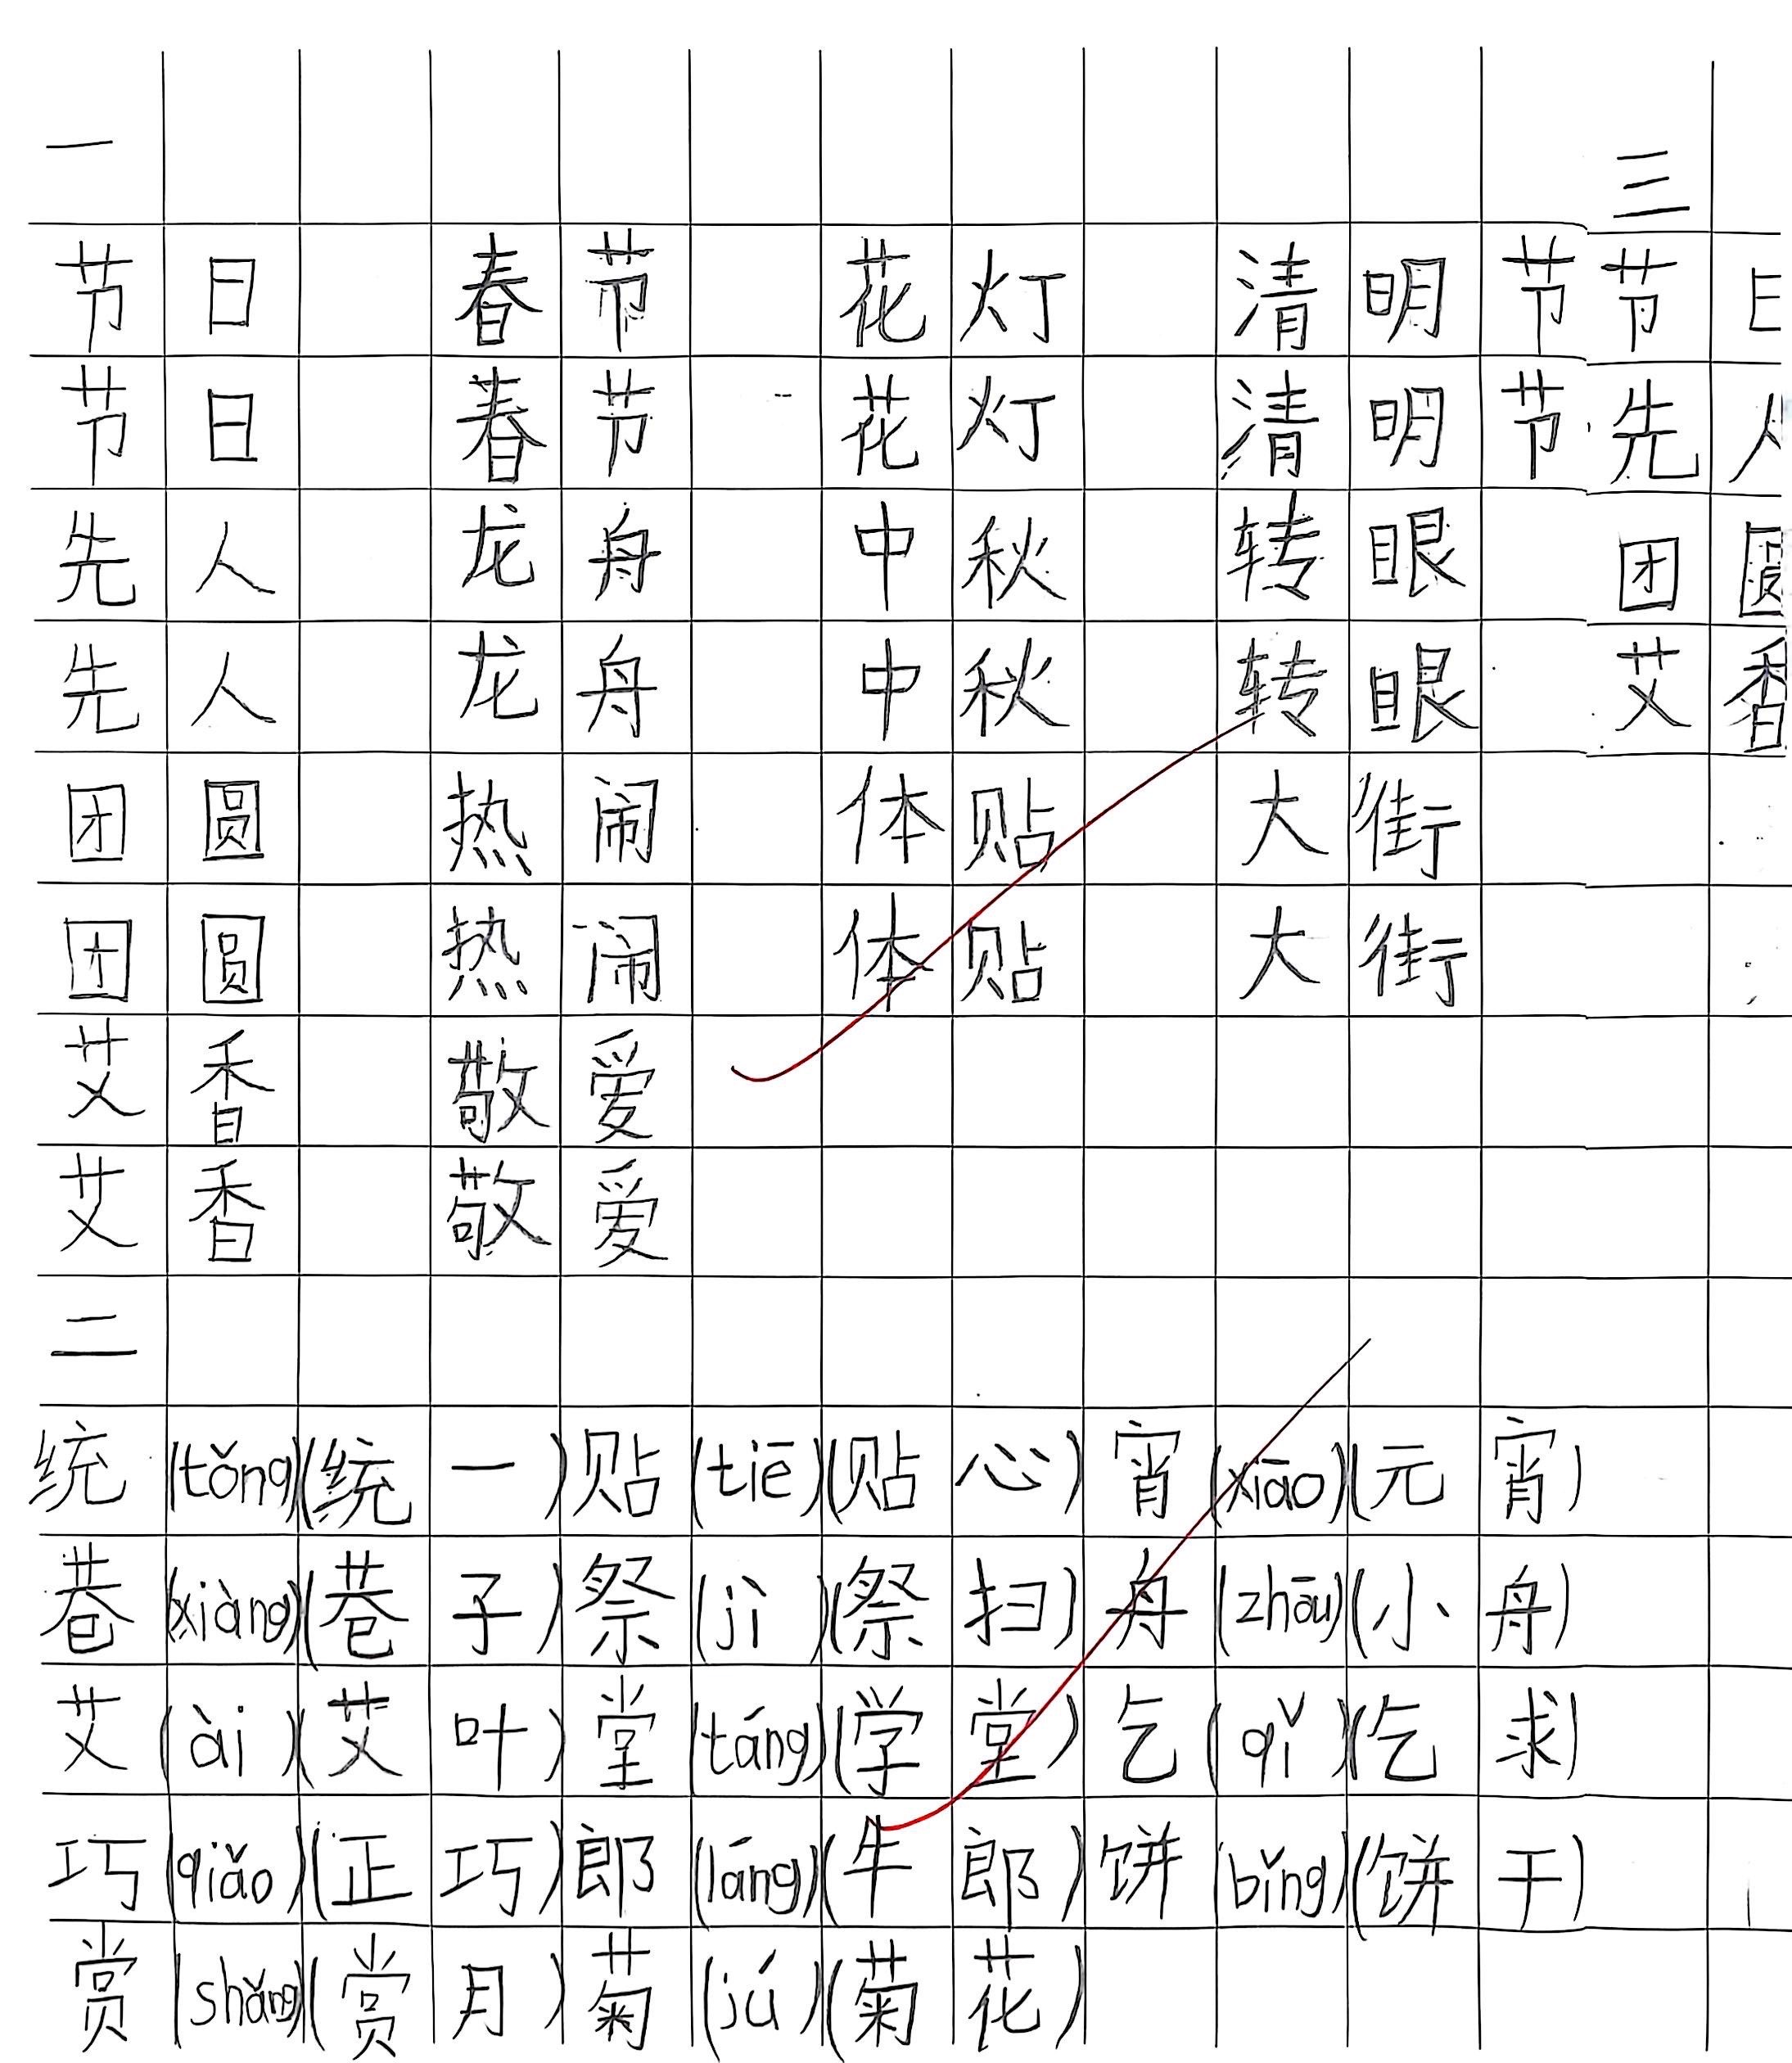 一 三
节日 春节 花灯 清明节 节日
节日 春节 花灯 清明节 先人
先人 龙舟 中秋 转眼 团圆
先人 龙舟 中秋 转眼 艾香
团圆 热闹 体贴 大街
团圆 热闹 体贴 大街
艾香 敬爱
艾香 敬爱
二
统(tǒng)(统一)贴(tiē)(贴心)宵(xiāo)(元宵)
巷(xiàng)(巷子)祭(jì)(祭扫)舟(zhōu)(小舟)
艾(ài)(艾叶)堂(táng)(学堂)乞(qǐ)(乞求)
巧(qiǎo)(正巧)郎(láng)(牛郎)饼(bǐng)(饼干)
赏(shǎng)(赏月)菊(jú)(菊花)